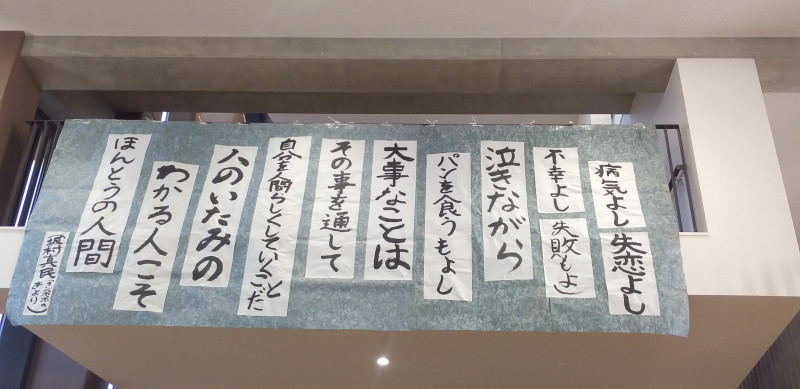 病気よし 失恋よし
不幸よし 失敗もよし
泣きながら
パンを食うもよし
大事なことは
その事を通して
自分を開らいてしていることだ
人のいたみの
わかる人こそ
ほんとうの人間
坂村真民